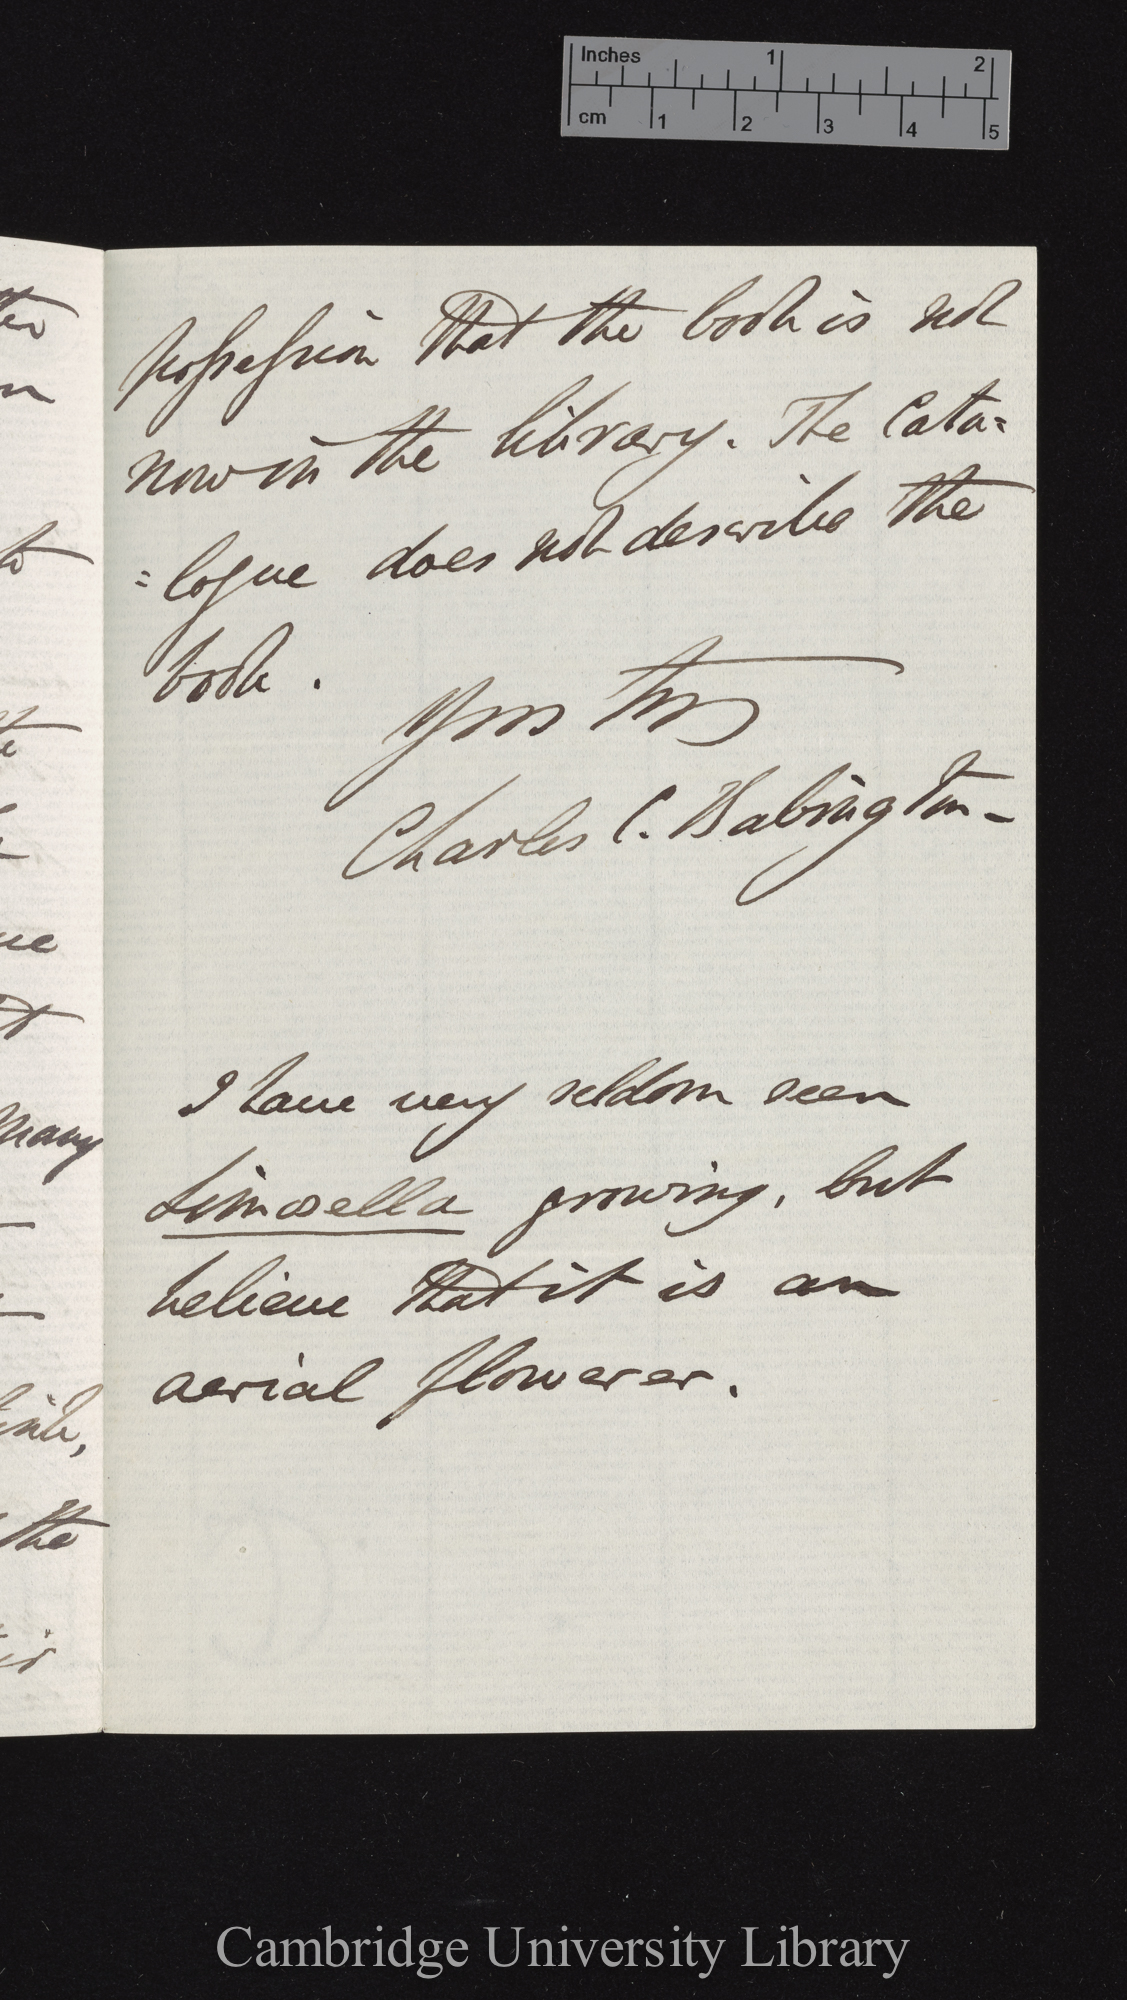 Inches 1 2
cm 1 2 3 4 5
possession that the book is not
now in the library. The Cata=
=logue does not describe the
book.
Yours truly
Charles C. Babington-
I have very seldom seen
Limosella growing, but
believe that it is an
aerial flowerer.
many
the
Cambridge University Library